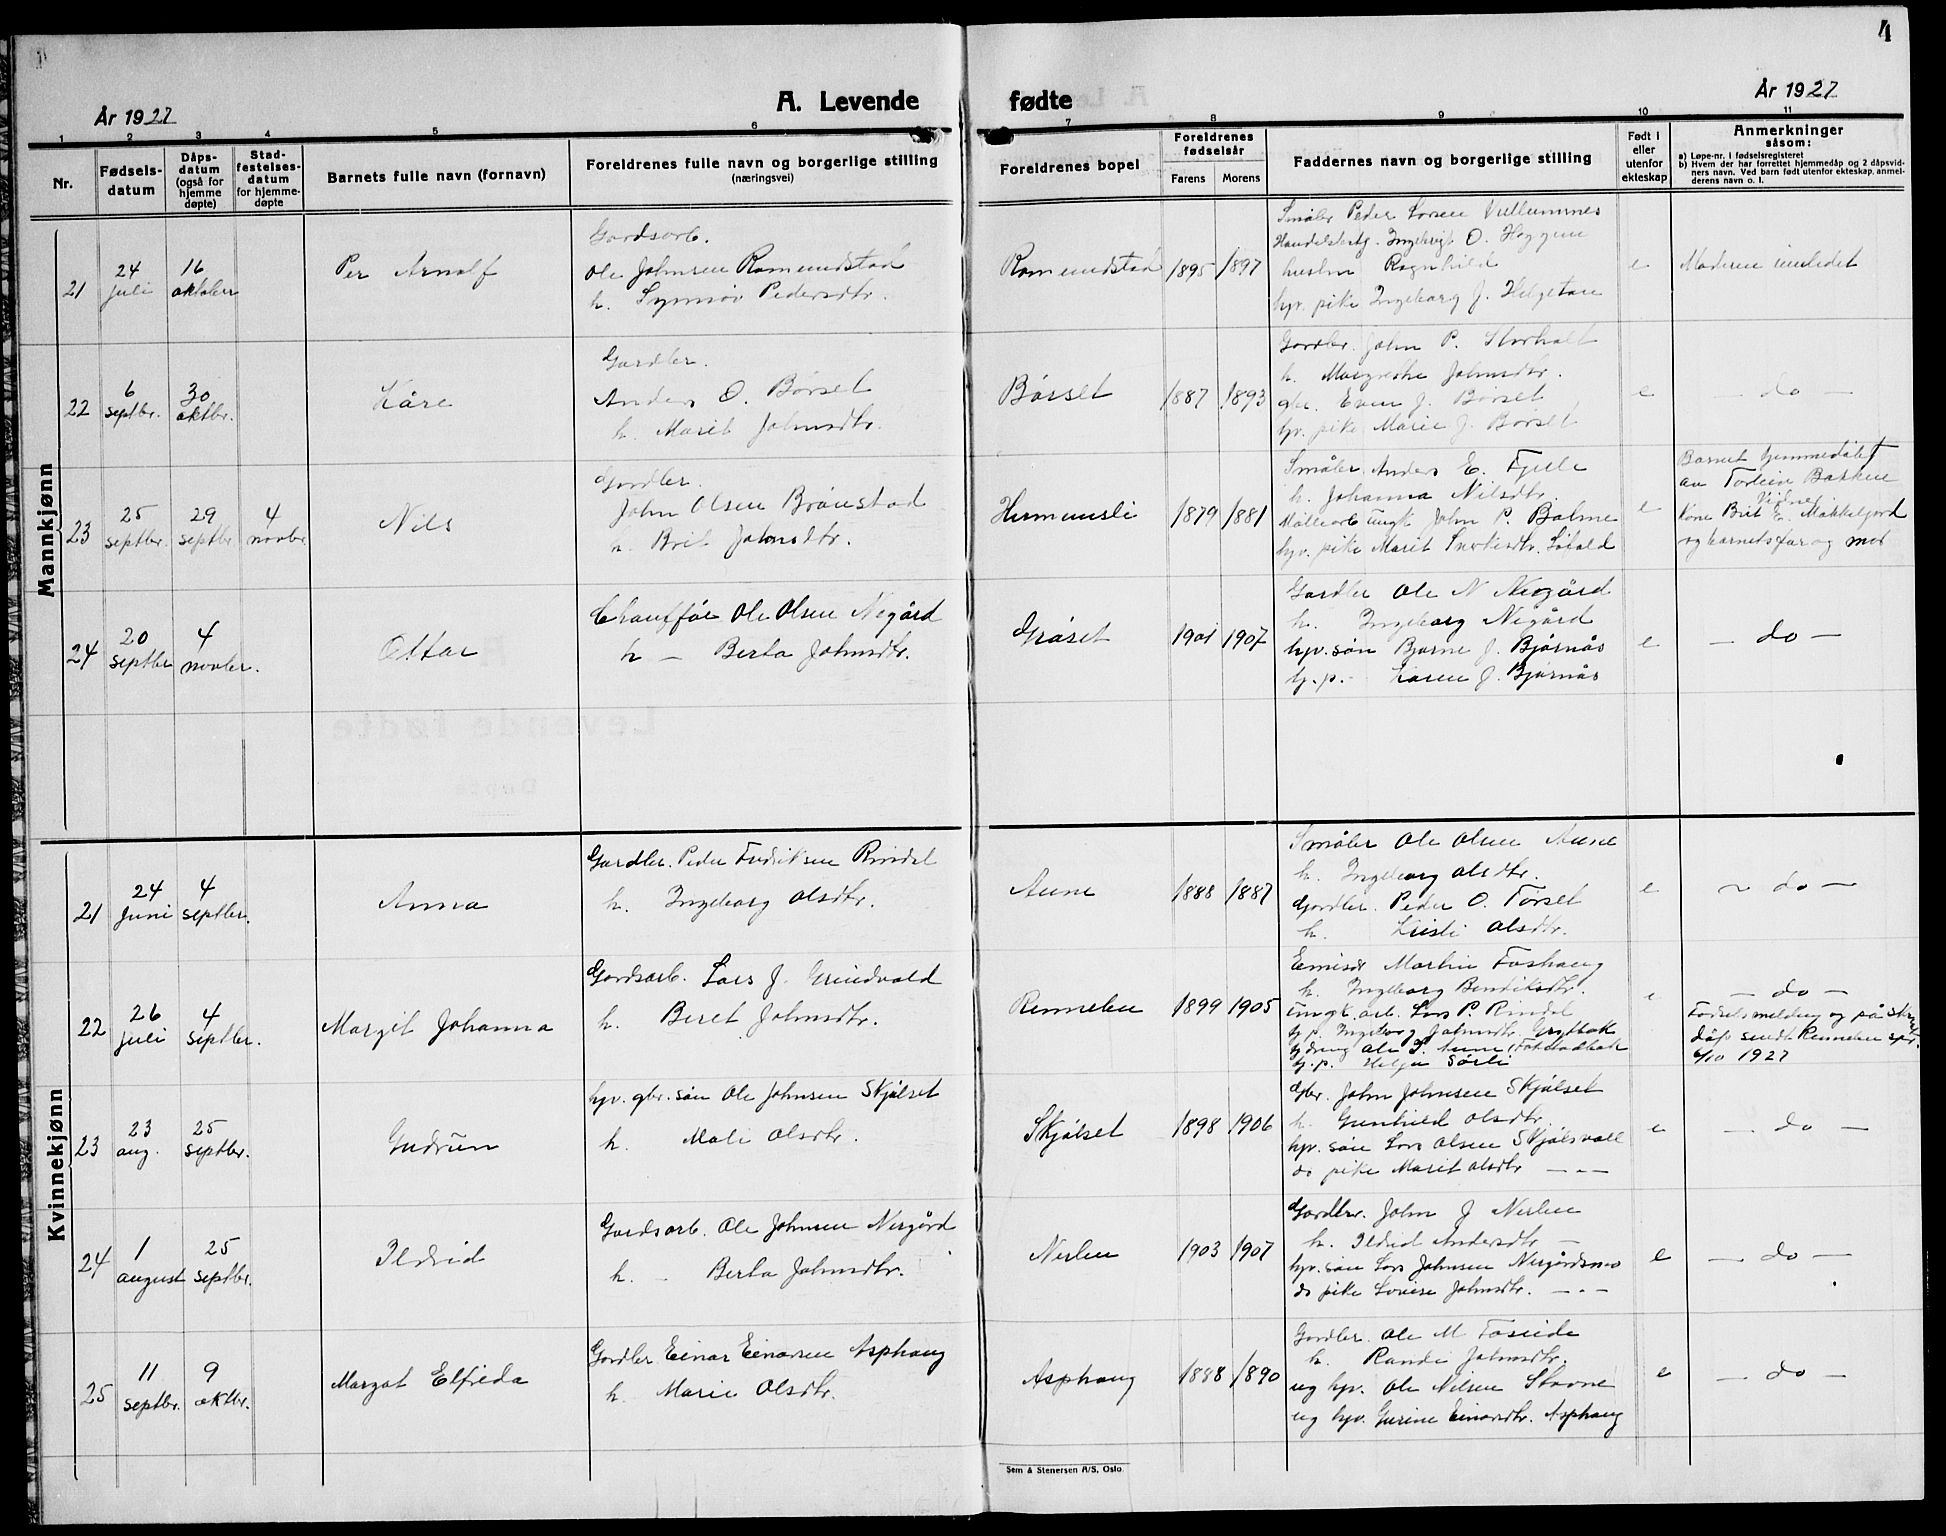 4
År 1927
A. Levende
fødte
År 1927
1 2 3 4 5 6 7 8 9 10 11
Nr.
Fødsels-
datum
Dåps-
datum
(også for
hjemme
døpte)
Stad-
festelses-
datum
for hjemme-
døpte
Barnets fulle navn (fornavn)
Foreldrenes fulle navn og borgerlige stilling
(næringsvei)
Foreldrenes bopel
Foreldrenes
fødselsår
Farens Morens
Faddernes navn og borgerlige stilling
Født i
eller
utenfor
ekteskap
Anmerkninger
såsom:
a) Løpe-nr. i fødselsregistret
b) Hvem der har forrettet hjemmedåp og 2 dåpsvid-
ners navn. Ved barn født utenfor ekteskap, anmel-
derens navn o. l.
Mannkjønn
21
24
juli
16
oktober
Per Arnolf
Gardsarb.
Ole Johnsen Romundstad
h. Synnøv Pedersdtr.
Romundstad
1895 1897
Småbr. Peder Larsen
Ingebrigt O. Heggem
Ragnhild
hjv. pike Ingeborg J. Helgetun
e
Moderen innledet
22
6
septbr.
30
oktbr.
Kåre
Gardbr.
Anders O. Børset
h. Marit Johnsdtr.
Børset
1887 1893
Gardbr. John P. Storholt
h. Margrethe Johnsdtr.
gbr. Even J. Børset
hv. pike Marie J. Børset
e
— do —
23
25
septbr.
29
septbr.
4
novbr.
Nils
Gardbr.
John Olsen Brønstad
h. Brit Johnsdtr.
1879 1881
Småbr. Anders E.
h. Johanna Nilsdtr.
John P. Bolme
hjv. pike Marit
e
Barnet hjemmedøbt
av
Kone Brit E.
og barnets far og mor
24
20
septbr.
4
novbr.
Ottar
Chauffør Ole Olsen Negård
h — Berta Johnsdtr.
Grøset
1901 1907
Gardbr Ole N Negård
h. Ingeborg Negård
hjv. søn Bjarne J. Bjørnås
hj.p. Karen J. Bjørnås
e
— do —
Kvinnekjønn
21
24
juni
4
septbr.
Anna
Gardbr. Peder Fredriksen Rindal
h. Ingeborg Olsdtr.
Aune
1888 1887
Småbr Ole Olsen Aune
h. Ingeborg Olsdtr.
Gardbr. Peder O. Torset
h. Kristi Olsdtr.
e
— do —
22
26
juli
4
septbr.
Margit Johanna
Gardsarb. Lars J. Grindvold
h. Beret Johnsdtr.
Rennebu
1899 1905
Martin Foshaug
h. Ingeborg Bendiksdtr.
ungk. arb. Lars P. Rindal
hj.p. Ingeborg Johnsdtr.
Ole J. Aune
hj.p. Helga Sørli
e
— do —
Fødselsmelding og på
dåp sendt Rennebu
6/10 1927
23
23
aug.
25
septbr.
Gudrun
hjv. gbr. søn Ole Johnsen Skjølset
h. Mali Olsdtr.
Skjølset
1898 1906
Gbr. John Johnsen Skjølset
h. Gunhild Olsdtr.
hjv. søn Lars Olsen Skjølsvoll
do pike Marit Olsdtr — „ —
e
— do —
24
1
august
25
septbr.
Ildrid
Gardsarb. Ole Johnsen Nergård
h. — Berta Johnsdtr.
Nerlien
1903 1907
Gardbr. John J Nerlien
h. Ildrid Andersdtr —
hjv. søn Lars Johnsen Nergårdsmo
do pike Lovise Johnsdtr. — „ —
e
— do —
25
11
septbr.
9
oktbr.
Margot Elfrida
Gardbr Einar Einarsen Asphaug
h. Marie Olsdtr.
Asphaug
1888 1890
Gardbr. Ole M Foseide
h. Randi Johnsdtr.
ug hjv. Ole Nilsen Stavne
ug hjv. Gurine Einarsdtr. Asphaug
e
— do —
Sem & Stenersen A/S, Oslo